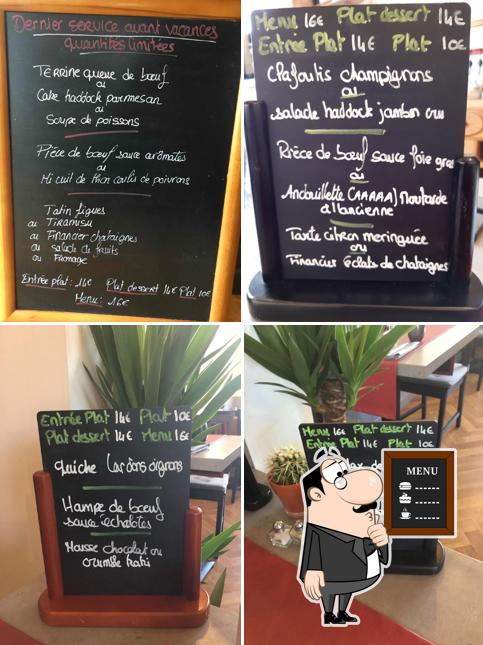 Dernier service avant vacances
quantités limitées
Terrine queue de bœuf
ou
Cake haddock parmesan
ou
Soupe de poissons
Pièce de bœuf sauce arômates
ou
Mi cuit de thon coulis de poivrons
Tatin figues
ou Tiramisu
ou Financier chataignes
ou salade de fruits
ou Fromage
Entrée plat : 14€ Plat dessert 14€ Plat 10€
Menu : 16€
Menu 16€ Plat dessert 14€
Entrée Plat 14€ Plat 10€
Clafoutis champignons
ou
salade haddock jambon cru
Pièce de bœuf sauce foie gras
ou
Andouillette (AAAAA) moutarde
à l'ancienne
Tarte citron meringuée
ou
Financier éclats de chataignes
Entrée Plat 14€ Plat 10€
Plat dessert 14€ Menu 16€
Quiche lardons oignons
Hampe de bœuf
sauce échalotes
Mousse chocolat ou
crumble
Menu 16€ Plat dessert 14€
Entrée Plat 14€ Plat 10€
MENU